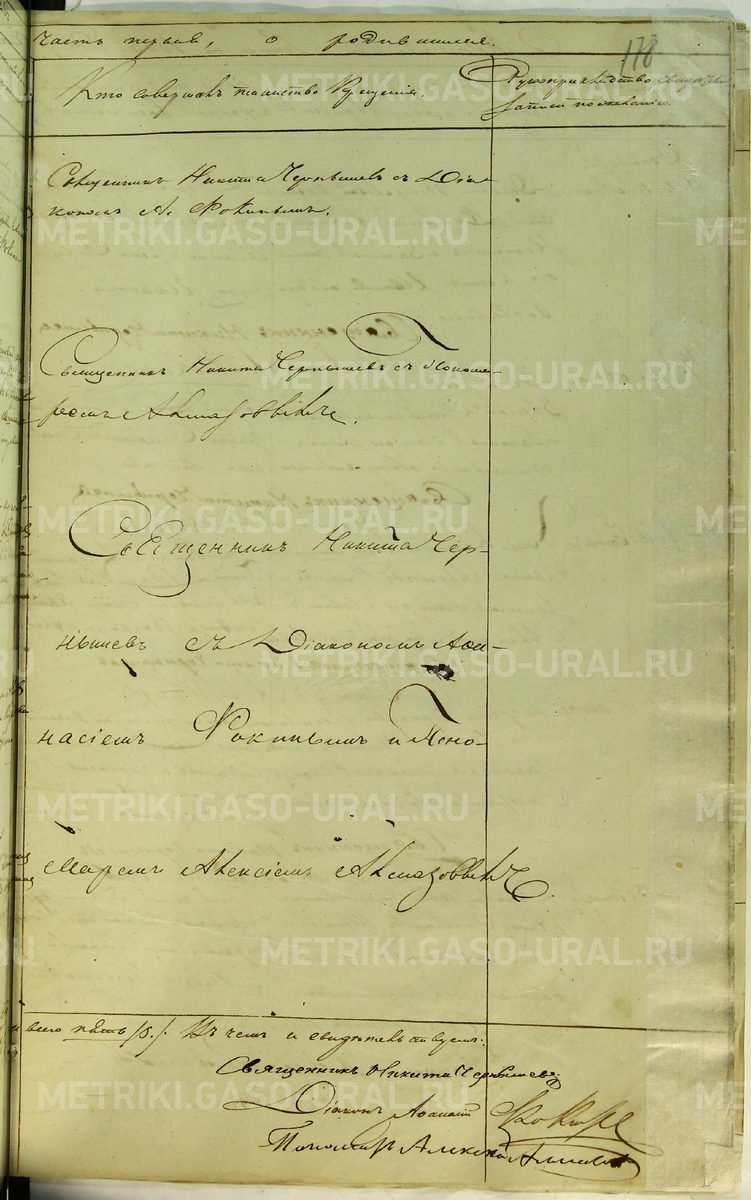 Часть первая, о родившихся.
178
Кто совершалъ таинство Крещенія.
Рукоприкладство свидѣтелей
записи по желанію.
Священникъ Никита Чернышевъ съ Діа-
кономъ А. Фокинымъ.
Священникъ Никита Чернышевъ съ Понома-
ремъ
Священникъ Никита Чер-
нышевъ съ Діакономъ Афа-
насіемъ Фокинымъ и Поно-
маремъ Алексіемъ
и всего пять /5./. Въ чемъ и свидѣтельствуемъ:
Священникъ Никита Чернышевъ
Діаконъ Афанасій Фокинъ
Пономарь Алексѣй
METRIKI.GASO-URAL.RU